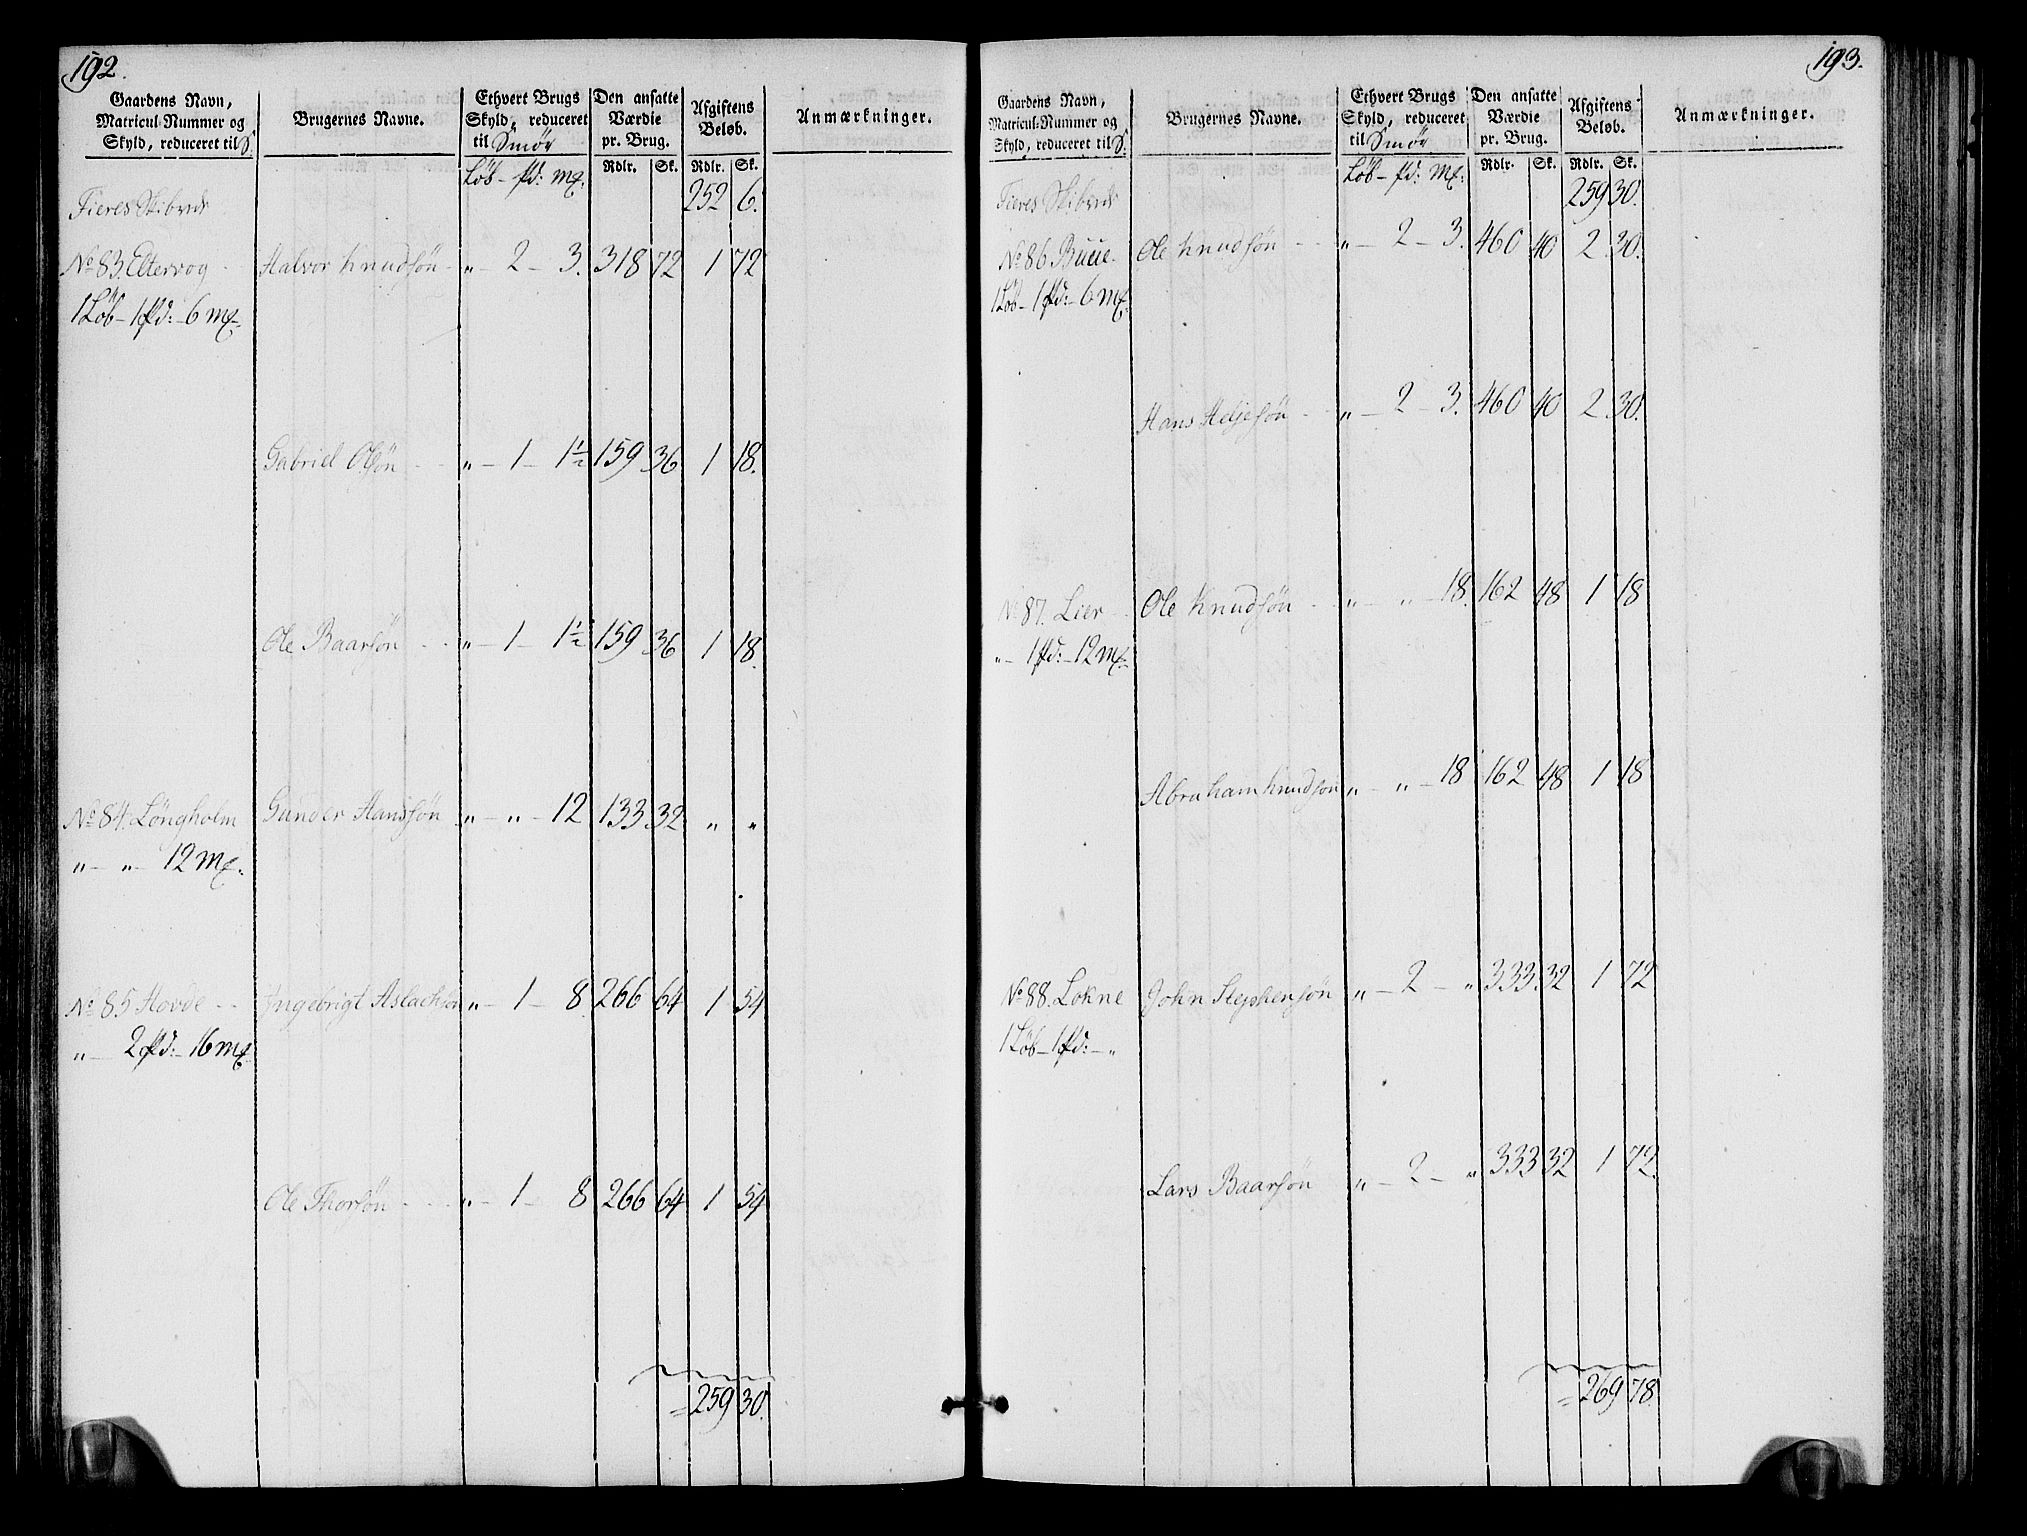 192.
Gaardens Navn, Matricul-Nummer og Skyld, reduceret til S.
Brugernes Navne.
Ethvert Brugs Skyld, reduceret til Smör
Den ansatte Værdie pr. Brug.
Afgiftens Beløb.
Anmærkninger.
Löb – pd: mk: Rdlr. Sk. Rdlr. Sk.
Fieres Skibrede 252 6.
No 83. Eltervog Halvor Knudsøn „ – 2 – 3. 318 72 1 72
1 Löb – 1 pd: – 6 mk.
Gabriel Olsøn „ – 1 – 1½ 159 36 1 18.
Ole Baarsøn „ – 1 – 1½ 159 36 1 18.
No 84. Løngholm Gunder Hansøn „ – „ – 12 133 32 „ „
„ – „ – 12 mk.
No 85 Hovde Ingebrigt Aslachsøn „ – 1 – 8 266 64 1 54
„ – 2 pd: – 16 mk.
Ole Thorsøn „ – 1 – 8 266 64 1 54
= 259 30.
193.
Gaardens Navn, Matricul-Nummer og Skyld, reduceret til S.
Brugernes Navne.
Ethvert Brugs Skyld, reduceret til Smör
Den ansatte Værdie pr. Brug.
Afgiftens Beløb.
Anmærkninger.
Löb – pd: mk: Rdlr. Sk. Rdlr. Sk.
Fieres Skibrede 259 30.
No 86 Buue Ole Knudsøn „ – 2 – 3. 460 40 2 30.
1 Löb – 1 pd: – 6 mk.
Hans Heljesøn „ – 2 – 3. 460 40 2 30.
No 87. Lier Ole Knudsøn „ – „ – 18. 162 48 1 18
„ – 1 pd: – 12 mk.
Abraham Knudsøn „ – „ – 18 162 48 1 18
No 88. Lokne John Stephensøn „ – 2 – „ 333 32 1 72
1 Löb – 1 pd: – „
Lars Baarsøn „ – 2 – „ 333 32 1 72.
= 269 78